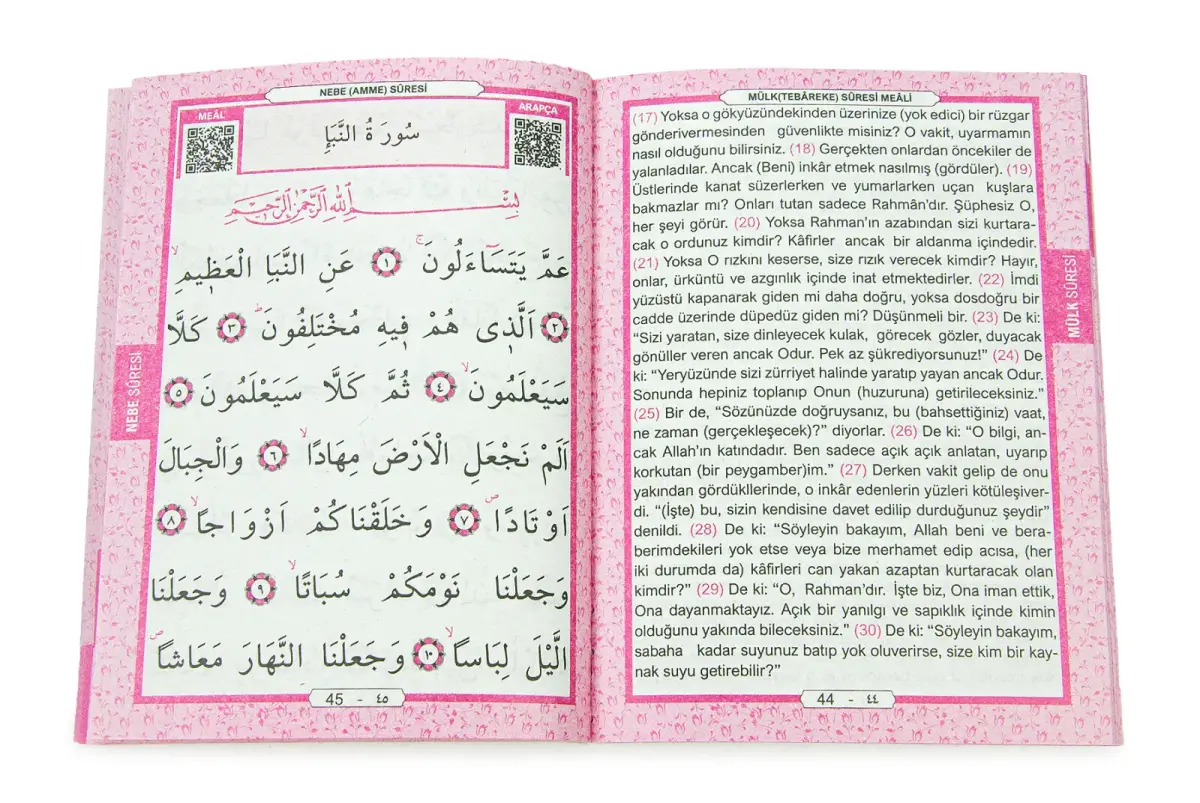 MÜLK(TEBÂREKE) SÛRESİ MEÂLİ
(17) Yoksa o gökyüzündekinden üzerinize (yok edici) bir rüzgar
gönderivermesinden güvenlikte misiniz? O vakit, uyarmamın
nasıl olduğunu bilirsiniz. (18) Gerçekten onlardan öncekiler de
yalanladılar. Ancak (Beni) inkâr etmek nasılmış (gördüler). (19)
Üstlerinde kanat süzerlerken ve yumarlarken uçan kuşlara
bakmazlar mı? Onları tutan sadece Rahmân'dır. Şüphesiz O,
her şeyi görür. (20) Yoksa Rahman'ın azabından sizi kurtara-
cak o ordunuz kimdir? Kâfirler ancak bir aldanma içindedir.
(21) Yoksa O rızkını keserse, size rızık verecek kimdir? Hayır,
onlar, ürküntü ve azgınlık içinde inat etmektedirler. (22) İmdi
yüzüstü kapanarak giden mi daha doğru, yoksa dosdoğru bir
cadde üzerinde düpedüz giden mi? Düşünmeli bir. (23) De ki:
“Sizi yaratan, size dinleyecek kulak, görecek gözler, duyacak
gönüller veren ancak Odur. Pek az şükrediyorsunuz!” (24) De
ki: “Yeryüzünde sizi zürriyet halinde yaratıp yayan ancak Odur.
Sonunda hepiniz toplanıp Onun (huzuruna) getirileceksiniz.”
(25) Bir de, “Sözünüzde doğruysanız, bu (bahsettiğiniz) vaat,
ne zaman (gerçekleşecek)?” diyorlar. (26) De ki: “O bilgi, an-
cak Allah'ın katındadır. Ben sadece açık açık anlatan, uyarıp
korkutan (bir peygamber)im.” (27) Derken vakit gelip de onu
yakından gördükllerinde, o inkâr edenlerin yüzleri kötüleşiver-
di. “(İşte) bu, sizin kendisine davet edilip durduğunuz şeydir”
denildi. (28) De ki: “Söyleyin bakayım, Allah beni ve bera-
berimdekileri yok etse veya bize merhamet edip acısa, (her
iki durumda da) kâfirleri can yakan azaptan kurtaracak olan
kimdir?” (29) De ki: “O, Rahman'dır. İşte biz, Ona iman ettik,
Ona dayanmaktayız. Açık bir yanılgı ve sapıklık içinde kimin
olduğunu yakında bileceksiniz.” (30) De ki: “Söyleyin bakayım,
sabaha kadar suyunuz batıp yok oluverirse, size kim bir kay-
nak suyu getirebilir?”
MÜLK SÛRESİ
44 - ٤٤
NEBE (AMME) SÛRESİ
MEÂL
ARAPÇA
سُورَةُ النَّبَإِ
بِسْمِ اللّٰهِ الرَّحْمٰنِ الرَّحِيمِ
عَمَّ يَتَسَٓاءَلُونَۚ ﴿١﴾ عَنِ النَّبَاِ الْعَظ۪يمِۙ
﴿٢﴾ اَلَّذ۪ى هُمْ ف۪يهِ مُخْتَلِفُونَۜ ﴿٣﴾ كَلَّا
سَيَعْلَمُونَۙ ﴿٤﴾ ثُمَّ كَلَّا سَيَعْلَمُونَ ﴿٥﴾
اَلَمْ نَجْعَلِ الْاَرْضَ مِهَادًاۙ ﴿٦﴾ وَالْجِبَالَ
اَوْتَادًاۖ ﴿٧﴾ وَخَلَقْنَاكُمْ اَزْوَاجًاۙ ﴿٨﴾
وَجَعَلْنَا نَوْمَكُمْ سُبَاتًاۙ ﴿٩﴾ وَجَعَلْنَا
الَّيْلَ لِبَاسًاۙ ﴿١٠﴾ وَجَعَلْنَا النَّهَارَ مَعَاشًاۖ
NEBE SÛRESİ
45 - ٤٥